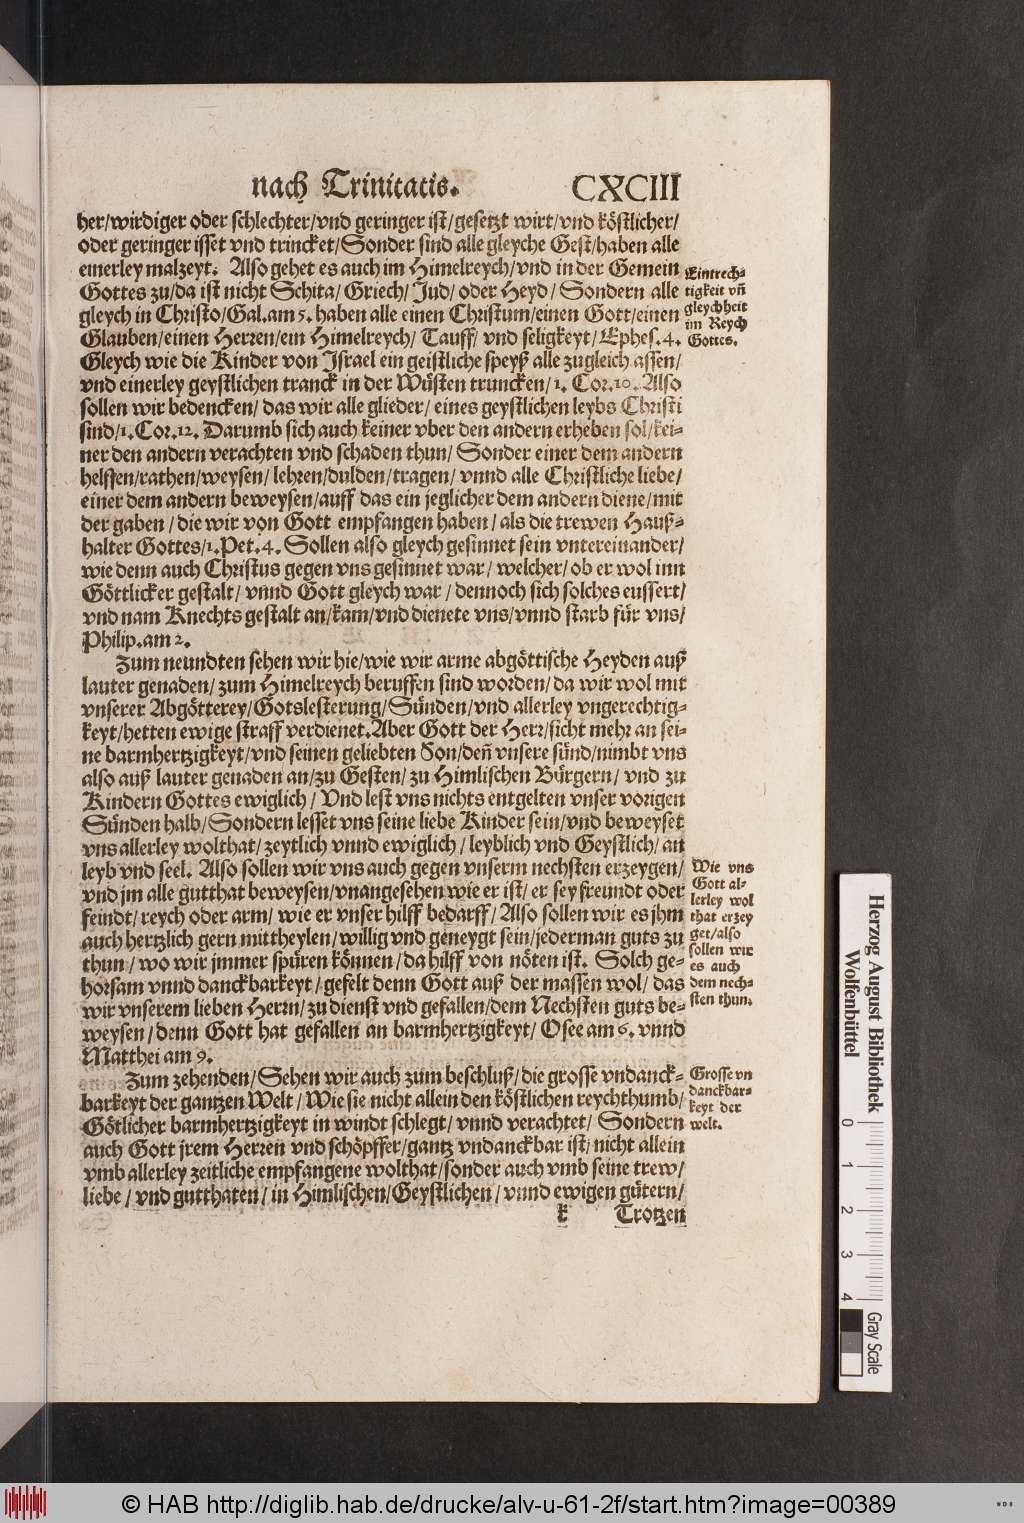 nach Trinitatis. CXCIII
her/wirdiger oder schlechter/vnd geringer ist/gesetzt wirt/vnd köstlicher/
oder geringer isset vnd trincket/Sonder sind alle gleyche Gest/haben alle
einerley malzeyt. Also gehet es auch im Himelreych/vnd in der Gemein
Gottes zu/da ist nicht Schita/Griech/Jud/oder Heyd/Sondern alle
gleych in Christo/Gal.am 5. haben alle einen Christum/einen Gott/einen
Glauben/einen Herren/ein Himelreych/Tauff/vnd seligkeyt/Ephes.4.
Gleych wie die Kinder von Israel ein geistliche speyß alle zugleich assen/
vnd einerley geystlichen tranck in der Wüsten truncken/1. Cor.10. Also
sollen wir bedencken/das wir alle glieder/eines geystlichen leybs Christi
sind/1.Cor.12. Darumb sich auch keiner vber den andern erheben sol/kei-
ner den andern verachten vnd schaden thun/Sonder einer dem andern
helffen/rathen/weysen/lehren/dulden/tragen/vnnd alle Christliche liebe/
einer dem andern beweysen/auff das ein jeglicher dem andern diene/mit
der gaben/die wir von Gott empfangen haben/als die trewen Hauß-
halter Gottes/1.Pet.4. Sollen also gleych gesinnet sein vntereinander/
wie denn auch Christus gegen vns gesinnet war/welcher/ob er wol inn
Göttlicker gestalt/vnnd Gott gleych war/dennoch sich solches eussert/
vnd nam Knechts gestalt an/kam/vnd dienete vns/vnnd starb für vns/
Philip.am 2.
Zum neundten sehen wir hie/wie wir arme abgöttische Heyden auß
lauter genaden/zum Himelreych beruffen sind worden/da wir wol mit
vnserer Abgötterey/Gotslesterung/Sünden/vnd allerley vngerechtig-
keyt/hetten ewige straff verdienet.Aber Gott der Herr/sicht mehr an sei-
ne barmhertzigkeyt/vnd seinen geliebten Son/deñ vnsere sünd/nimbt vns
also auß lauter genaden an/zu Gesten/zu Himlischen Bürgern/vnd zu
Kindern Gottes ewiglich/Vnd lest vns nichts entgelten vnser vorigen
Sünden halb/Sondern lesset vns seine liebe Kinder sein/vnd beweyset
vns allerley wolthat/zeytlich vnnd ewiglich/leyblich vnd Geystlich/an
leyb vnd seel. Also sollen wir vns auch gegen vnserm nechsten erzeygen/
vnd jm alle gutthat beweysen/vnangesehen wie er ist/er sey freundt oder
feindt/reych oder arm/wie er vnser hilff bedarff/Also sollen wir es jhm
auch hertzlich gern mittheylen/willig vnd geneygt sein/jederman guts zu
thun/wo wir jmmer spüren können/da hilff von nöten ist. Solch ge-
horsam vnnd danckbarkeyt/gefelt denn Gott auß der massen wol/das
wir vnserem lieben Herrn/zu dienst vnd gefallen/dem Nechsten guts be-
weysen/denn Gott hat gefallen an barmhertzigkeyt/Osee am 6. vnnd
Matthei am 9.
Zum zehenden/Sehen wir auch zum beschluß/die grosse vndanck-
barkeyt der gantzen Welt/Wie sie nicht allein den köstlichen reychthumb/
Götlicher barmhertzigkeyt in windt schlegt/vnnd verachtet/Sondern
auch Gott jrem Herren vnd schöpffer/gantz vndanckbar ist/nicht allein
vmb allerley zeitliche empfangene wolthat/sonder auch vmb seine trew/
liebe/vnd gutthaten/in Himlischen/Geystlichen/vnnd ewigen gütern/
k Trotzen
Eintrech-
tigkeit vñ
gleychheit
im Reych
Gottes.
Wie vns
Gott al-
lerley wol
that erzey
get/also
sollen wir
es auch
dem nech-
sten thun.
Grosse vn
danckbar-
keyt der
welt.
Herzog August Bibliothek
Wolfenbüttel
0 1 2 3 4
Gray Scale
© HAB http://diglib.hab.de/drucke/alv-u-61-2f/start.htm?image=00389
WDB